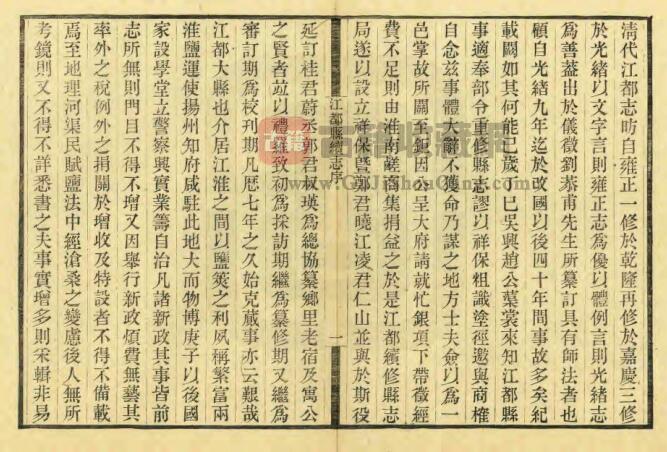 清代江都志昉自雍正一修於乾隆再修於嘉慶三修
於光緒以文字言則雍正志為優以體例言則光緒志
為善葢出於儀徵劉恭甫先生所纂訂具有師法者也
顧自光緒九年迄於改國以後四十年間事故多矣紀
載闕如其何能已歲丁巳吳興趙公蓴裳來知江都縣
事適奉部令重修縣志謬以祥保粗識塗徑邀與商榷
自念茲事體大辭不獲命乃謀之地方士夫僉以為一
邑掌故所關至鉅因合呈大府請就忙銀項下帶徵經
費不足則由淮南鹺商集捐益之於是江都續修縣志
局遂以設立祥保暨鄭君曉江凌君仁山並與於斯役
江都縣續志序
一
延訂桂君蔚丞郭君叔瑛為總協纂鄉里老宿及寓公
之賢者竝以禮羅致初為採訪期繼為纂修期又繼為
審訂期為校刊期凡厯七年之久始克蕆事亦云艱哉
江都大縣也介居江淮之間以鹽筴之利夙稱繁富兩
淮鹽運使揚州知府咸駐此地大而物博庚子以後國
家設學堂立警察興實業籌自治凡諸新政其事皆前
志所無則門目不得不增又因舉行新政煩費無藝其
率外之稅例外之捐關於增收及特設者不得不備載
焉至地理河渠民賦鹽法中經滄桑之變慮後人無所
考鏡則又不得不詳悉書之夫事實增多則采輯非易
古籍收藏网
www.GujiShouCang.com